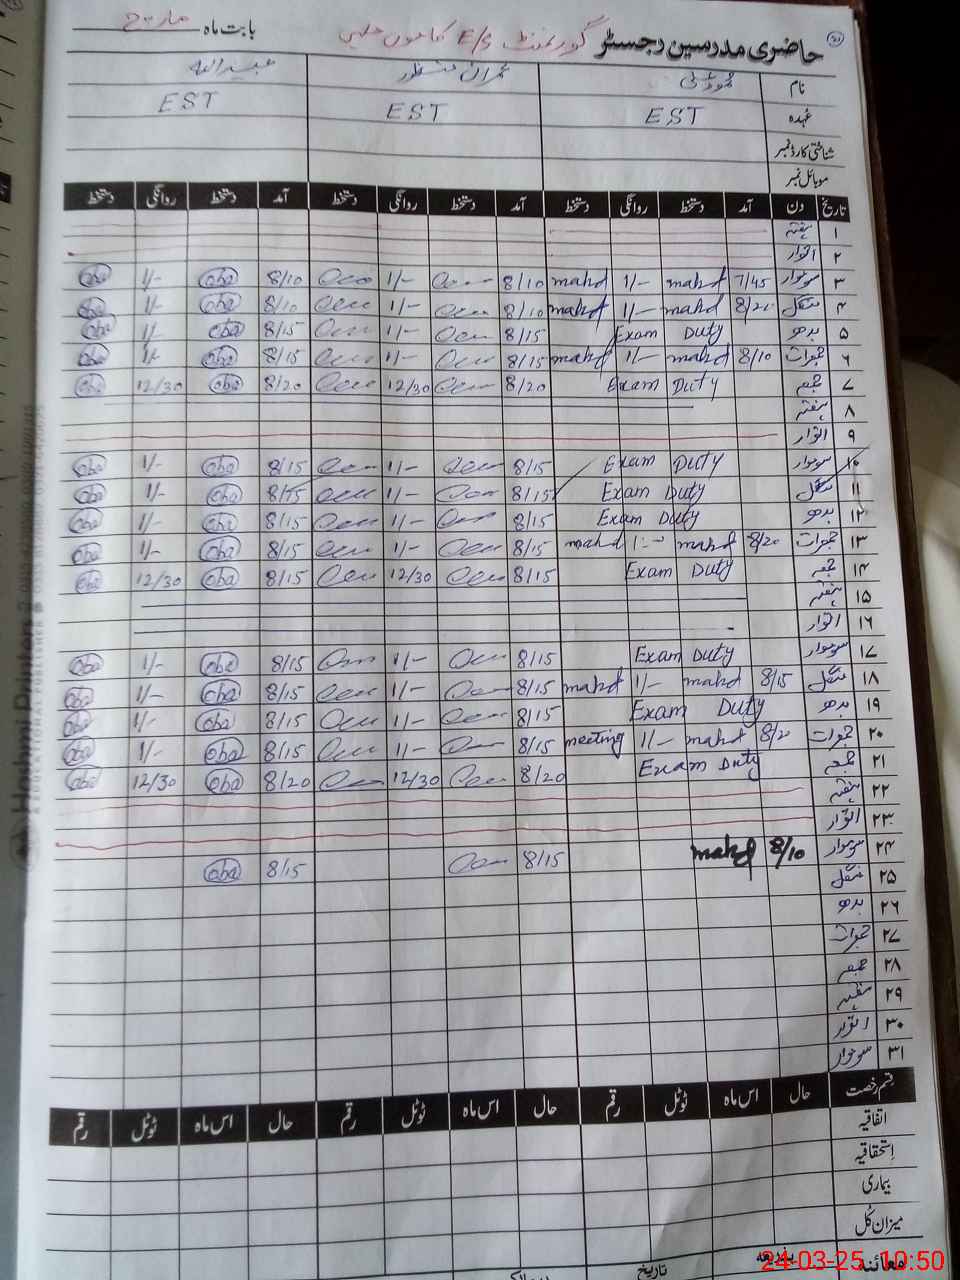 حاضری مدرسین رجسٹر گورنمنٹ E/S بابت ماہ مارچ
نام عمران منظور عبیداللہ
عہدہ EST EST EST
شناختی کارڈ نمبر
موبائل نمبر
تاریخ دن آمد دستخط روانگی دستخط آمد دستخط روانگی دستخط آمد دستخط روانگی دستخط
۱ ہفتہ
۲ اتوار
۳ سوموار 7/45 mahd 1/- mahd 8/10 1/- 8/10 oba 1/- oba
۴ منگل mahd 1/- mahd 8/10 1/- 8/10 oba 1/- oba
۵ بدھ Exam Duty 8/15 1/- 8/15 oba 1/- oba
۶ جمعرات 8/10 mahd 1/- mahd 8/15 1/- 8/15 oba 1/- oba
۷ جمعہ Exam Duty 8/20 12/30 8/20 oba 12/30 oba
۸ ہفتہ
۹ اتوار
۱۰ سوموار Exam Duty 8/15 1/- 8/15 oba 1/- oba
۱۱ منگل Exam Duty 8/15 1/- 8/15 oba 1/- oba
۱۲ بدھ Exam Duty 8/15 1/- 8/15 oba 1/- oba
۱۳ جمعرات 8/20 mahd 1:- mahd 8/15 1/- 8/15 oba 1/- oba
۱۴ جمعہ Exam Duty 8/15 12/30 8/15 oba 12/30 oba
۱۵ ہفتہ
۱۶ اتوار
۱۷ سوموار Exam Duty 8/15 1/- 8/15 oba 1/- oba
۱۸ منگل 8/15 mahd 1/- mahd 8/15 1/- 8/15 oba 1/- oba
۱۹ بدھ Exam Duty 8/15 1/- 8/15 oba 1/- oba
۲۰ جمعرات 8/20 mahd 1/- meeting 8/15 1/- 8/15 oba 1/- oba
۲۱ جمعہ Exam Duty 8/20 12/30 8/20 oba 12/30 oba
۲۲ ہفتہ
۲۳ اتوار
۲۴ سوموار 8/10 mahd 8/15 8/15 oba
۲۵ منگل
۲۶ بدھ
۲۷ جمعرات
۲۸ جمعہ
۲۹ ہفتہ
۳۰ اتوار
۳۱ سوموار
قسم رخصت حال اس ماہ ٹوٹل رقم حال اس ماہ ٹوٹل رقم حال اس ماہ ٹوٹل رقم
اتفاقیہ
استحقاقیہ
بیماری
میزان کل
معائنہ بذریعہ تاریخ
24-03-25 10:50
Hashmi Printers